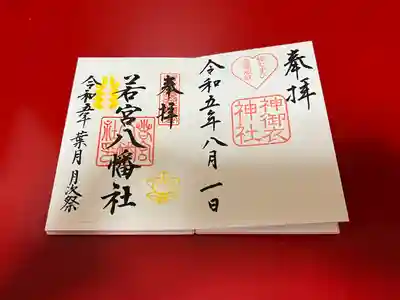 奉拝
神御衣
神社
令和五年八月一日
奉拝
若宮八幡社
令和五年 葉月 月次祭